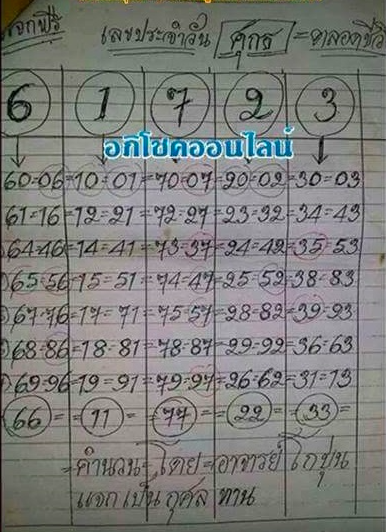 แจกฟรี
เลขประจำวัน ศุกร์ = ตลอดชีวิต
6 1 7 2 3
อภิโชคออนไลน์
60=06=10=01=70=07=20=02=30=03
61=16=12=21=72=27=23=32=34=43
64=46=14=41=73=37=24=42=35=53
65=56=15=51=74=47=25=52=38=83
67=76=17=71=75=57=28=82=39=93
68=86=18=81=78=87=29=92=36=63
69=96=19=91=79=97=26=62=31=13
66= =11= =77= =22= =33=
=คำนวน=โดย=อาจารย์ โกปุ่น
แจกเป็นกุศลทาน